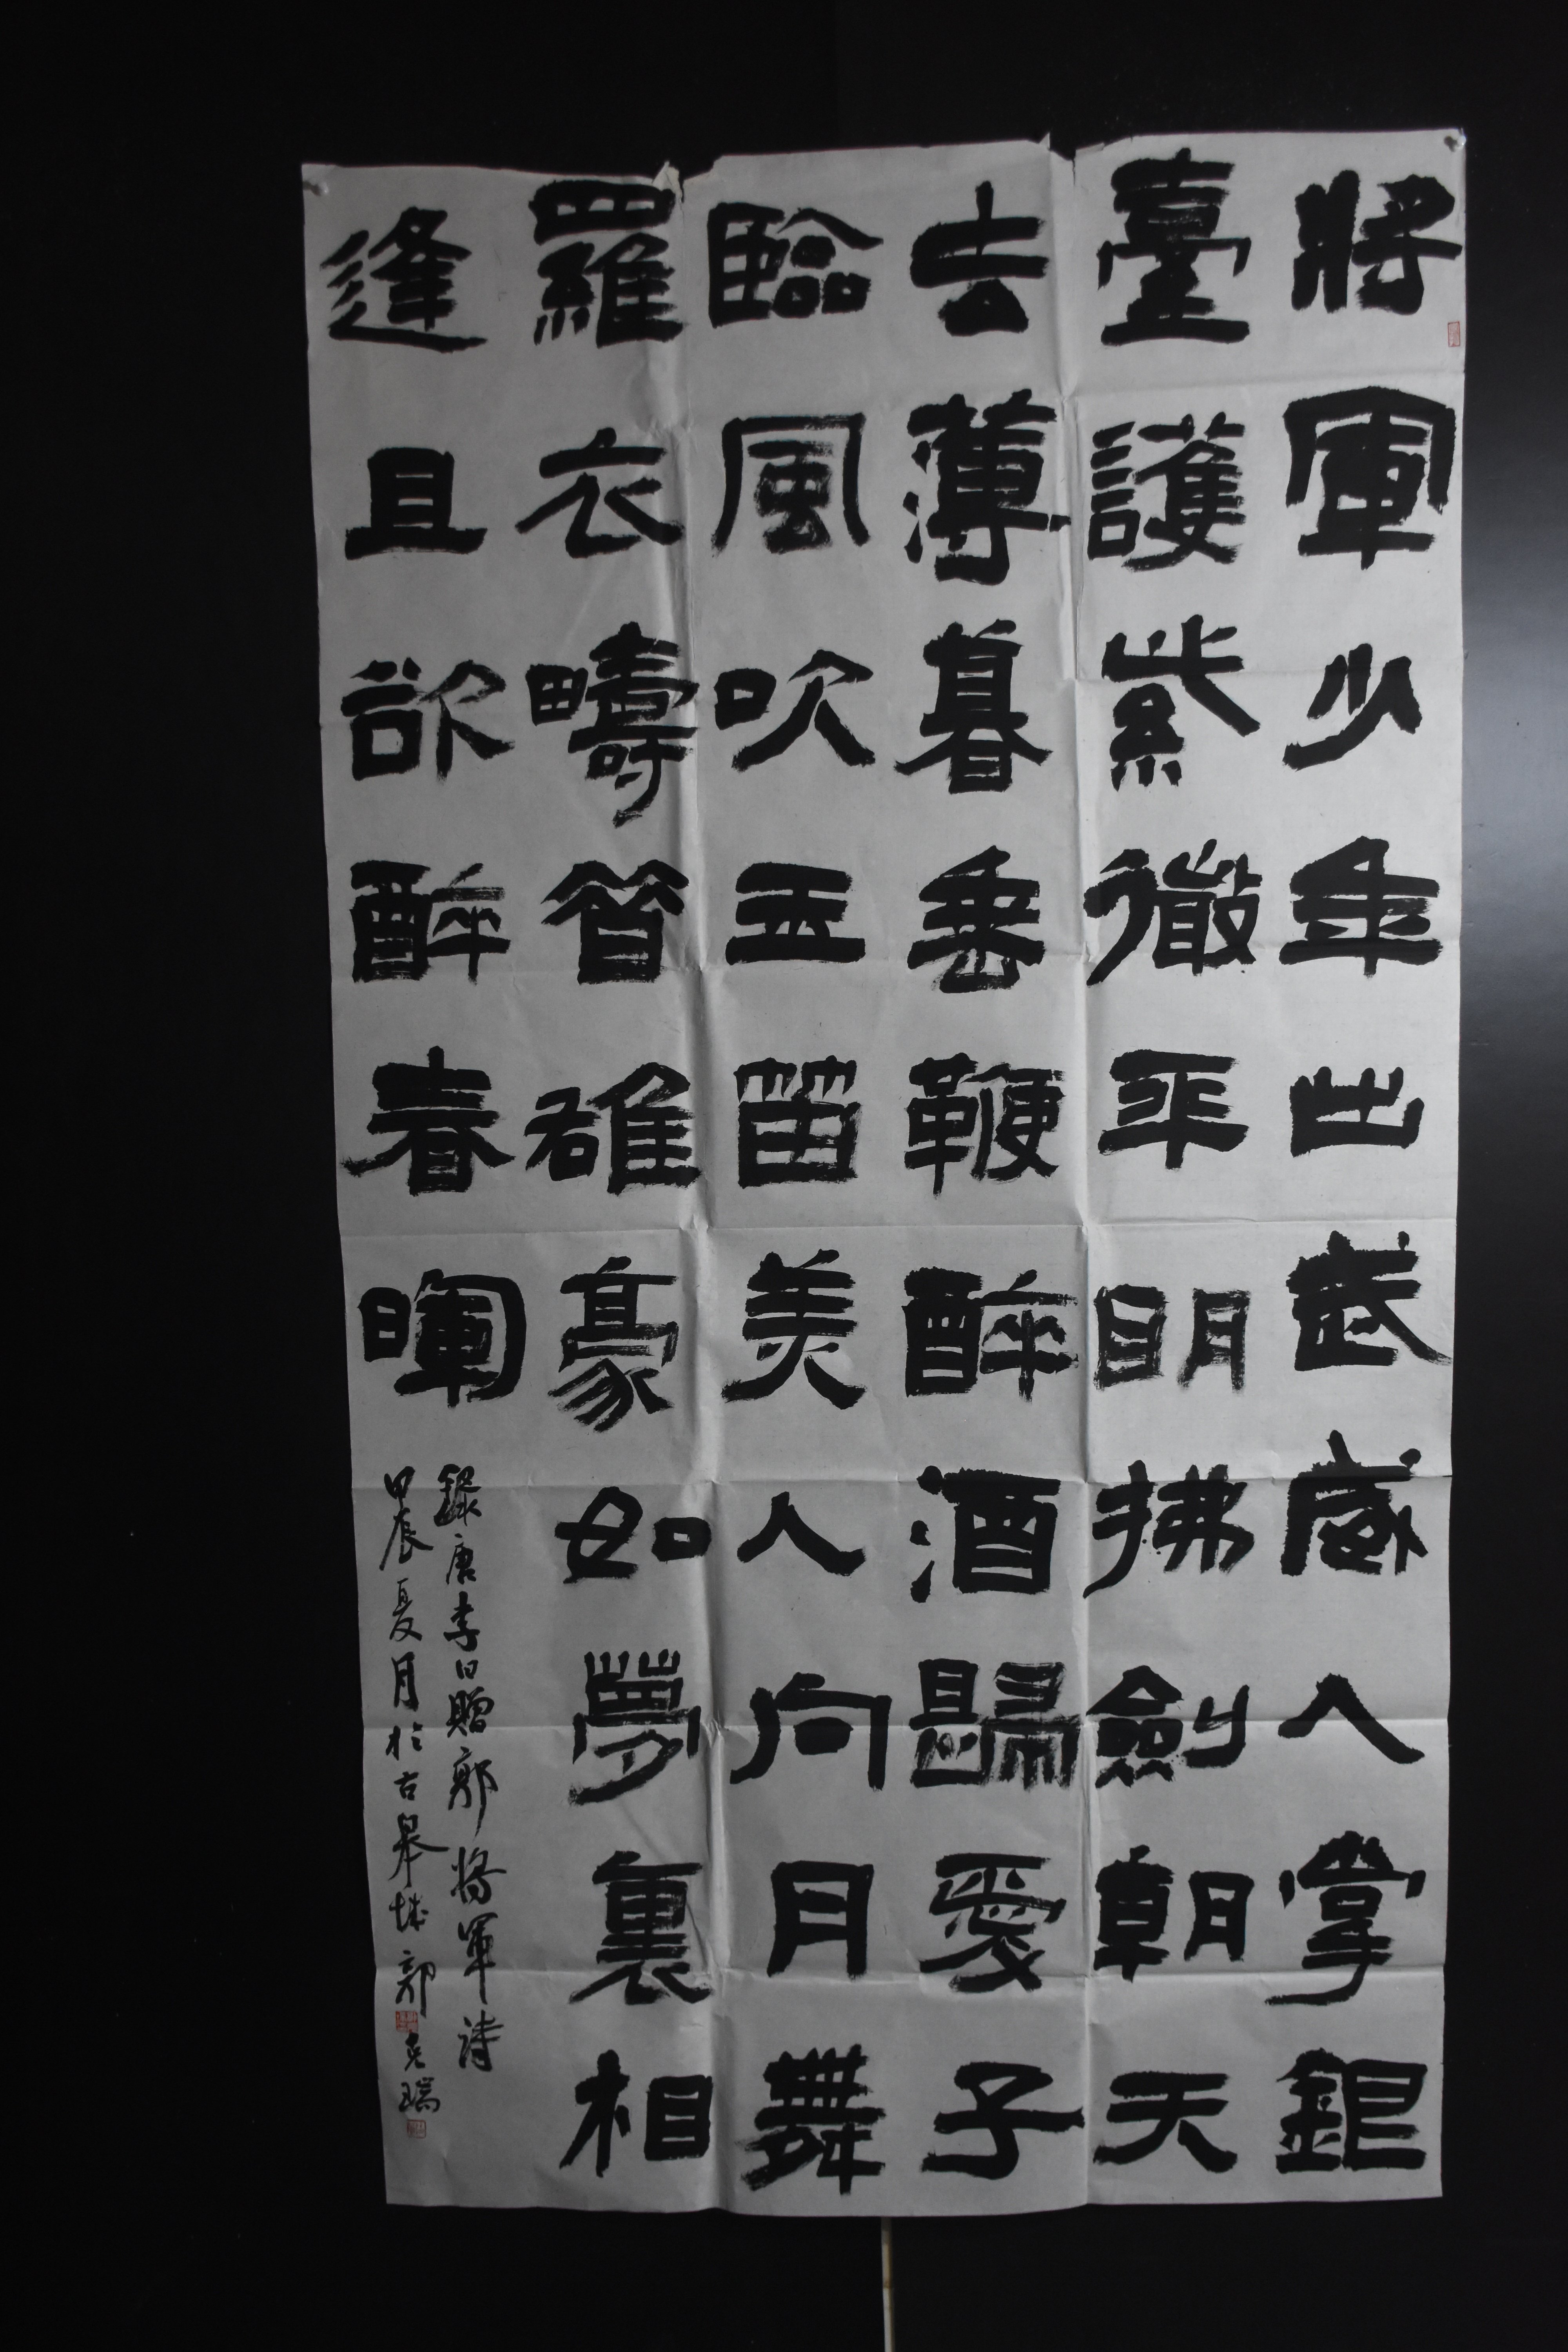 將軍少年出武威入掌銀
臺護紫微平明拂劍朝天
去薄暮垂鞭醉酒歸愛子
臨風吹玉笛美人向月舞
羅衣疇昔雄豪如夢裏相
逢且欲醉春暉
錄唐李白贈郭將軍詩
甲辰夏月於古皋城郭克瑞